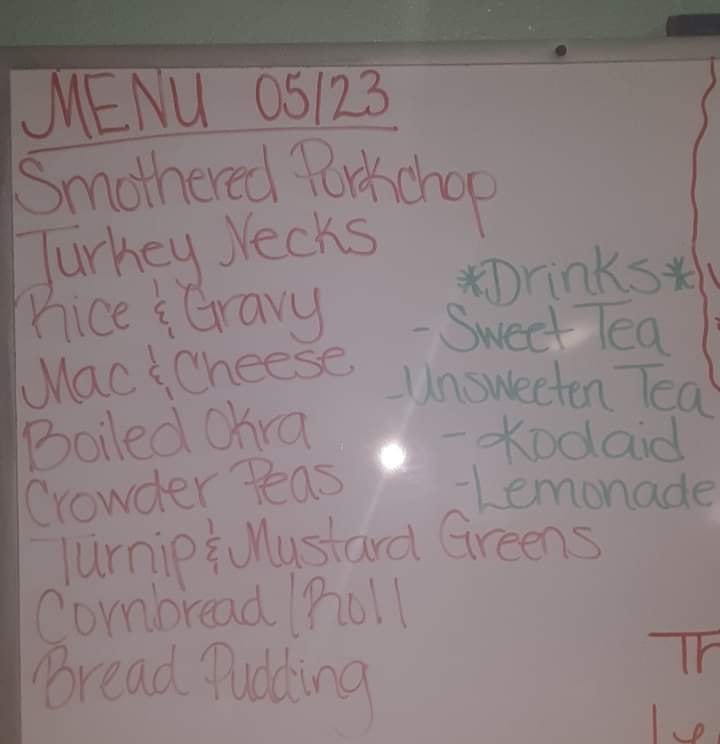 MENU 05/23
Smothered Porkchop
Turkey Necks
Rice & Gravy
Mac & Cheese
Boiled Okra
Crowder Peas
Turnip & Mustard Greens
Cornbread/Roll
Bread Pudding
*Drinks*
- Sweet Tea
- Unsweeten Tea
- Koolaid
- Lemonade